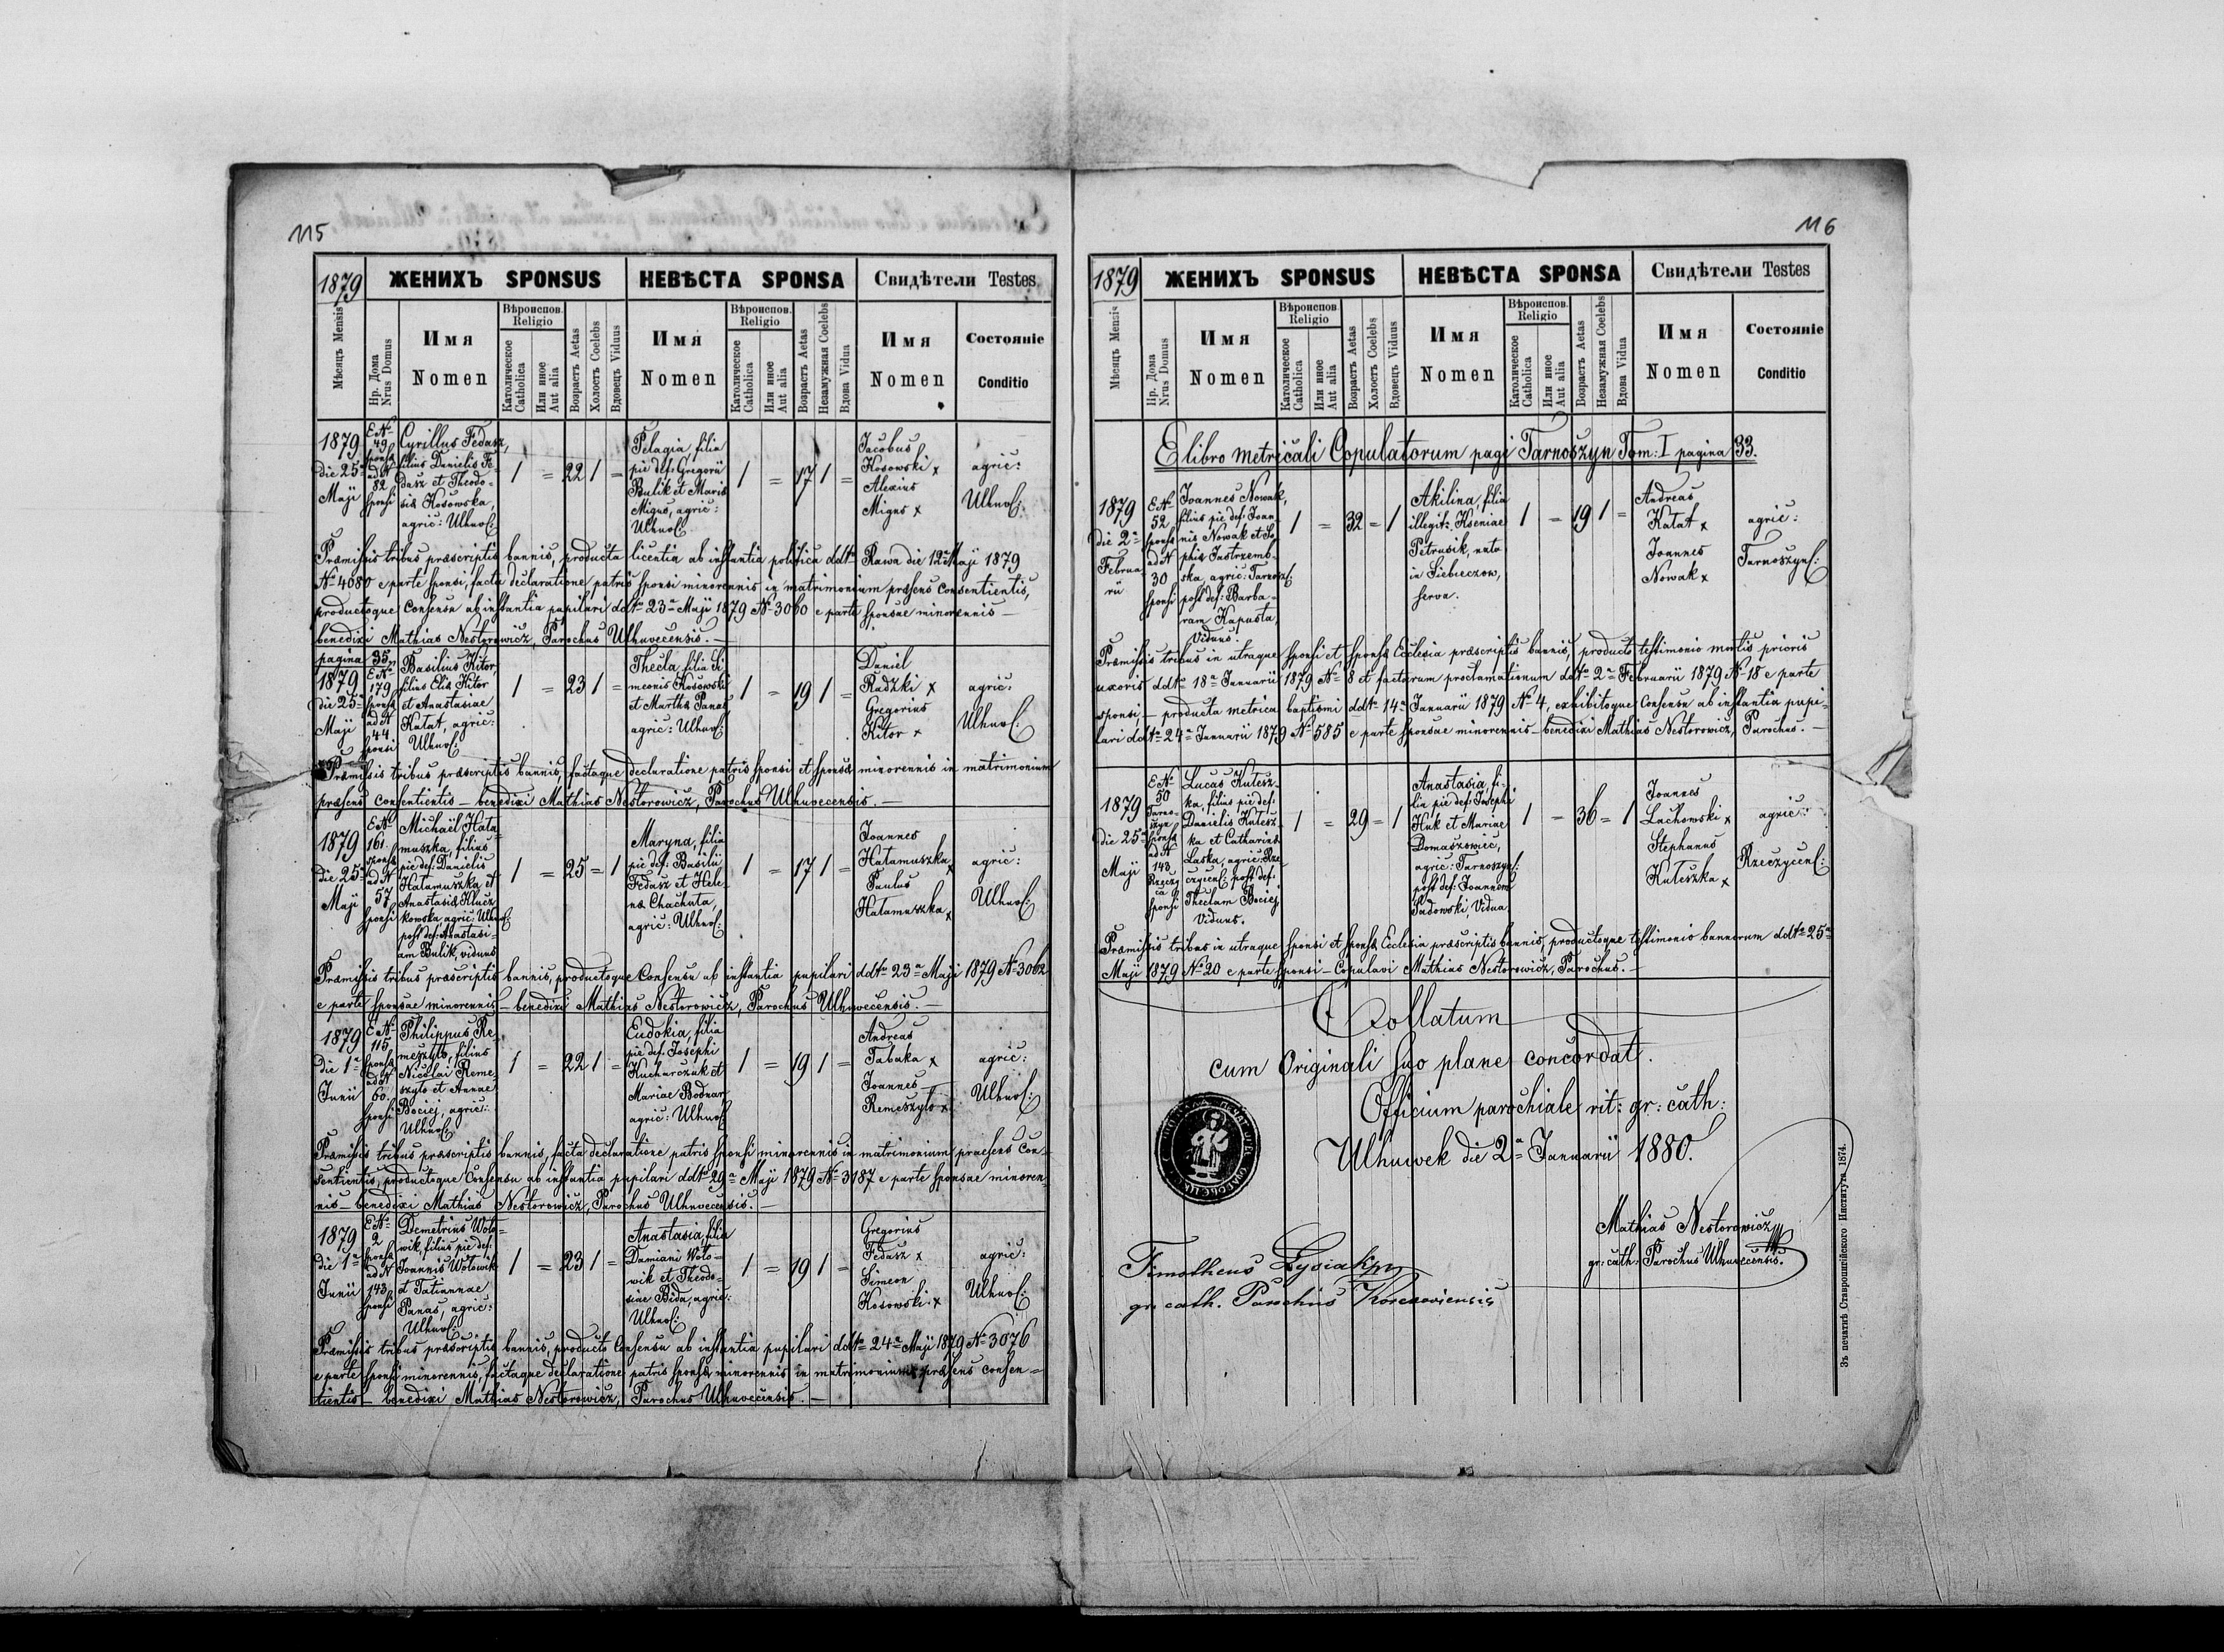 115
1879 ЖЕНИХЪ SPONSUS НЕВѢСТА SPONSA Свидѣтели Testes
Мѣсяцъ Mensis
Нр. Дома Nrus Domus
Имя Nomen
Вѣроиспов. Religio
Католическое Catholica
Или иное Aut alia
Возрастъ Aetas
Холостъ Coelebs
Вдовецъ Viduus
Имя Nomen
Вѣроиспов. Religio
Католическое Catholica
Или иное Aut alia
Возрастъ Aetas
Незамужная Coelebs
Вдова Vidua
Имя Nomen
Состояніе Conditio
1879
die 25a
Maji
E No
49
sponsæ
ad N
82
sponsi
Cyrillus Fedasz,
filius Danielis Fe-
dasz et Theodo-
siæ Kosowska,
agric: Uhnov:
1 = 22 1 =
Pelagia, filia
pie def: Gregorii
Bulik et Mariæ
Migus, agric:
Uhnov:
1 = 17 1 =
Jacobus
Kosowski x
Alexius
Migus x
agric:
Uhnov:
Præmissis tribus præscriptis bannis, producta licentia ab instantia politica ddto Rawa die 12a Maji 1879
No 4080 e parte sponsi, facta declaratione patris sponsi minorennis in matrimonium præsens consentientis,
productoque Consensu ab instantia pupilari ddto 23a Maji 1879 No 3060 e parte sponsae minorennis —
benedixi Mathias Nestorowicz, Parochus Uhnuvecensis. —
pagina 35.
1879
die 25a
Maji
E No
179
sponsæ
ad N
44
sponsi
Basilius Kitor,
filius Eliæ Kitor
et Anastasiae
Katat, agric:
Uhnov:
1 = 23 1 =
Thecla, filia Si-
meonis Kosowski
et Marthæ Panas
agric: Uhnov:
1 = 19 1 =
Daniel
Radzki x
Gregorius
Kitor x
agric:
Uhnov:
Præmissis tribus præscriptis bannis, factaque declaratione patris sponsi et sponsæ minorennis in matrimonium
præsens consentientis — benedixi Mathias Nestorowicz, Parochus Uhnuvecensis. —
1879
die 25a
Maji
E No
161
sponsæ
ad N
57
sponsi
Michaël Hata-
muszka, filius
pie def: Danielis
Hatamuszka et
Anastasiæ Klucz
kowska agric: Uhnov:
post def: Anastasi-
am Bulik, viduus
1 = 25 = 1
Maryna, filia
pie def: Basilii
Fedasz et Hele-
næ Chachuta,
agric: Uhnov:
1 = 17 1 =
Joannes
Hatamuszka x
Paulus
Hatamuszka x
agric:
Uhnov:
Præmissis tribus præscriptis bannis, productoque Consensu ab instantia pupilari ddto 23a Maji 1879 No 3062
e parte sponsae minorennis — benedixi Mathias Nestorowicz, Parochus Uhnuvecensis. —
1879
die 1a
Junii
E No
115
sponsæ
ad N
60.
sponsi
Philippus Re-
meszyło, filius
Nicolai Reme-
szyło et Annae
Bociej, agric:
Uhnov:
1 = 22 1 =
Eudokia, filia
pie def: Josephi
Kucharczuk et
Mariae Bodnar
agric: Uhnov:
1 = 19 1 =
Andreas
Tabaka x
Joannes
Remeszyło x
agric:
Uhnov:
Præmissis tribus præscriptis bannis, facta declaratione patris sponsi minorennis in matrimonium praesens con-
sentientis, productoque Consensu ab instantia pupilari ddto 29a Maji 1879 No 3187 e parte sponsae minoren-
nis — benedixi Mathias Nestorowicz, Parochus Uhnuvecensis. —
1879
die 1a
Junii
E No
2
sponsæ
ad N
143
sponsi
Demetrius Woło-
wik, filius pie def:
Joannis Wołowik
et Tatiannae
Panas, agric:
Uhnov:
1 = 23 1 =
Anastasia, filia
Damiani Woło-
wik et Theodo-
siae Bida, agric:
Uhnov:
1 = 19 1 =
Gregorius
Fedasz x
Simeon
Kosowski x
agric:
Uhnov:
Præmissis tribus præscriptis bannis, producto Consensu ab instantia pupilari ddto 24a Maji 1879 No 3076
e parte sponsi minorennis, factaque declaratione patris sponsæ minorennis in matrimonium præsens consen-
tientis — benedixi Mathias Nestorowicz, Parochus Uhnuvecensis. —
116
1879 ЖЕНИХЪ SPONSUS НЕВѢСТА SPONSA Свидѣтели Testes
Мѣсяцъ Mensis
Нр. Дома Nrus Domus
Имя Nomen
Вѣроиспов. Religio
Католическое Catholica
Или иное Aut alia
Возрастъ Aetas
Холостъ Coelebs
Вдовецъ Viduus
Имя Nomen
Вѣроиспов. Religio
Католическое Catholica
Или иное Aut alia
Возрастъ Aetas
Незамужная Coelebs
Вдова Vidua
Имя Nomen
Состояніе Conditio
E libro metricali Copulatorum pagi Tarnoszyn Tom: I pagina 33.
1879
die 2a
Februa-
rii
E No
52
sponsæ
ad N
30
sponsi
Joannes Nowak,
filius pie def: Joan-
nis Nowak et So-
phiæ Jastrzemb-
ska, agric: Tarnosz:
post def: Barba-
ram Kapusta,
Viduus.
1 = 32 = 1
Akilina, filia
illegit: Kseniae
Petrusik, nata
in Siebieczow,
serva.
1 = 19 1 =
Andreas
Katat x
Joannes
Nowak x
agric:
Tarnoszyn:
Præmissis tribus in utraque sponsi et sponsæ Ecclesia præscriptis bannis, producto testimonio mortis prioris
uxoris ddto 18a Januarii 1879 No 8 et factarum proclamationum ddto 2a Februarii 1879 No 18 e parte
sponsi, — producta metrica baptismi ddto 14a Januarii 1879 No 4, exhibitoque Consensu ab instantia pupi-
lari ddto 24a Januarii 1879 No 585 e parte sponsae minorennis — benedixi Mathias Nestorowicz, Parochus. —
1879
die 25a
Maji
E No
50
Tarno-
szyn
sponsæ
ad N
143
Rzeczy
ca
sponsi
Lucas Kulesz-
ka, filius pie def:
Danielis Kulesz-
ka et Catharinæ
Laska, agric: Rze-
czycen: post def:
Theclam Bociej
Viduus.
1 = 29 = 1
Anastasia, fi-
lia pie def: Josephi
Huk et Mariae
Domaszowiec,
agric: Tarnoszyn:
post def: Joannem
Sadowski, Vidua.
1 = 36 = 1
Joannes
Lachowski x
Stephanus
Kuleszka x
agric:
Rzeczycen:
Præmissis tribus in utraque sponsi et sponsæ Ecclesia præscriptis bannis, productoque testimonio bannorum ddto 25a
Maji 1879 No 20 e parte sponsi — Copulavi Mathias Nestorowicz, Parochus. —
Collatum
cum Originali suo plane concordat.
Officium parochiale rit: gr: cath:
Uhnuwek die 2a Januarii 1880.
Mathias Nestorowicz
gr: cath: Parochus Uhnuvecensis.
Timotheus Łysiak
gr. cath. Parochus Korczoviensis
Зъ печатнѣ Ставропигійского Института 1874.